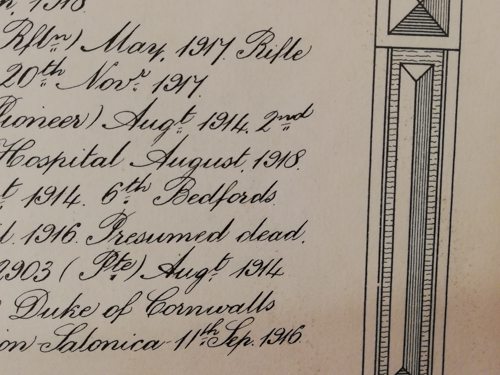 1918
Rfln) May, 1917. Rifle
20th Novr. 1917.
Pioneer) Augt 1914. 2nd
Hospital August, 1918.
t 1914. 6th Bedfords.
1916. Presumed dead.
2903 (Pte) Augt 1914
Duke of Cornwalls
on Salonica 11th Sep. 1916